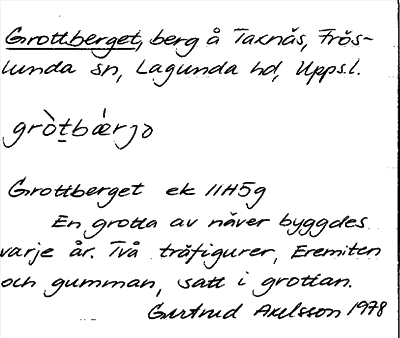 Grottberget, berg å Taxnäs, Frös-
lunda sn, Lagunda hd, Upps.l.
gròt̠bǽrjo
Grottberget ek 11H5g
En grotta av näver byggdes
varje år. Två träfigurer, Eremiten
och gumman, satt i grottan.
Gertrud Axelsson 1978